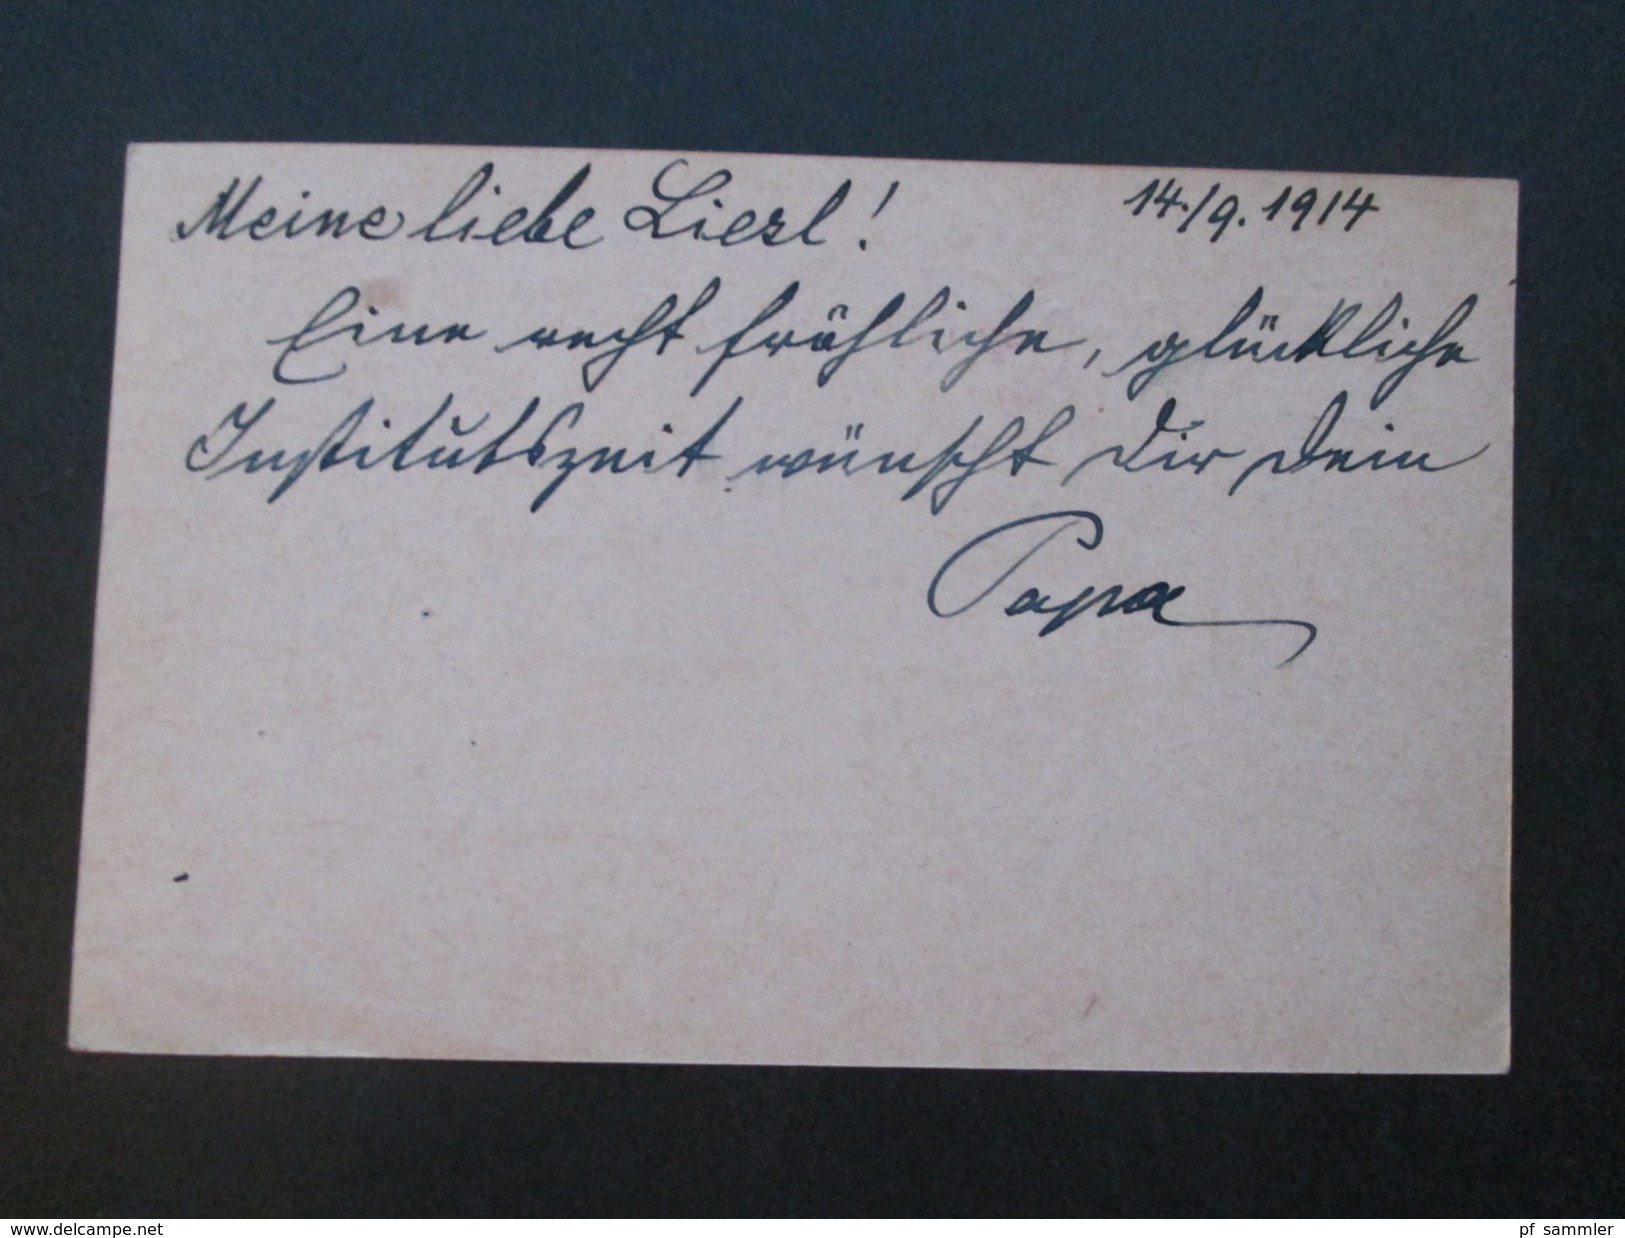 Meine liebe Liesl! 14./9. 1914
Eine recht fröhliche, glückliche
Institutszeit wünscht Dir Dein
Papa
www.delcampe.net
pf_sammler